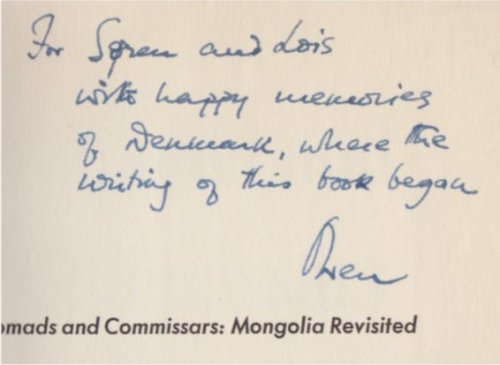 For Søren and Lois
with happy memories
of Denmark, where the
writing of this book began
Owen
omads and Commissars: Mongolia Revisited